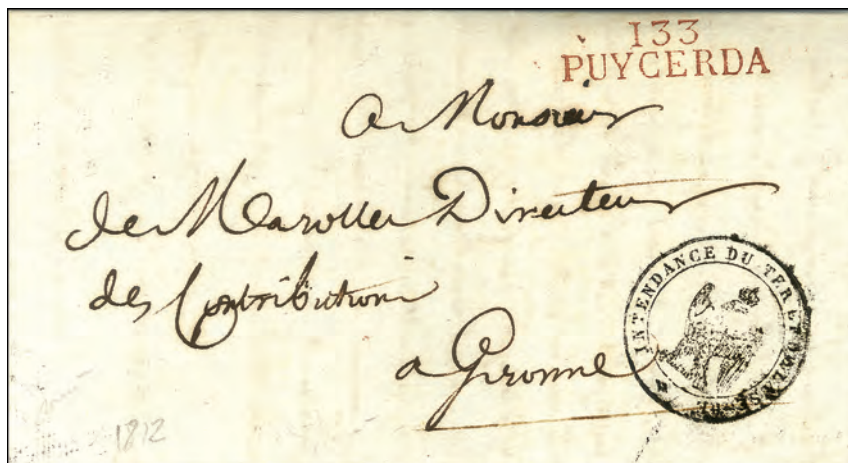 133
PUYCERDA
a Monsieur
de Marolles Directeur
des Contributions
a Gironne
INTENDANCE DU TER ET DE LA SEGRE
1812